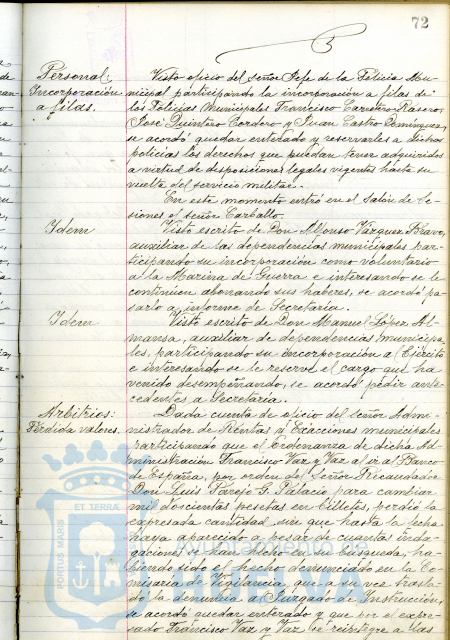 72
Personal:
Incorporación
a filas.
Visto oficio del señor Jefe de la Policia Mu-
nicipal participando la incorporación a filas de
los Policias Municipales Francisco Carretero Rasero,
José Quintero Cordero y Juan Castro Dominguez,
se acordó quedar enterado y reservarles a dichos
policias los derechos que puedan tener adquiridos
a virtud de disposiciones legales vigentes hasta su
vuelta del servicio militar.
En este momento entró en el Salón de Se-
siones el señor Carballo.
Idem
Visto escrito de Don Alfonso Vázquez Bravo,
auxiliar de las dependencias municipales par-
ticipando su incorporación como voluntario
a la Marina de Guerra e interesando se le
continúen abonando sus haberes, se acordó pa-
sarlo a informe de Secretaría.
Idem
Visto escrito de Don Manuel López Al-
mansa, auxiliar de dependencias municipa-
les, participando su incorporación al Ejército
e interesando se le reserve el cargo que ha
venido desempeñando, se acordó pedir ante-
cedentes a Secretaria.
Arbitrios:
Pérdida valores.
Dada cuenta de oficio del señor Admi-
nistrador de Rentas y Exacciones municipales
participando que el Ordenanza de dicha Ad-
ministración Francisco Vaz y Vaz al ir al Banco
de España, por orden del Señor Recaudador
Don Luis Parejo G. Palacio para cambiar
mil doscientas pesetas en billetes, perdió la
expresada cantidad sin que hasta la fecha
haya aparecido a pesar de cuantas inda-
gaciones se han hecho en su búsqueda, ha-
biendo sido el hecho denunciado en la Co-
misaria de Vigilancia que a su vez trasla-
dó la denuncia al Juzgado de Instrucción,
se acordó quedar enterado y que por el expre-
sado Francisco Vaz y Vaz se reintegre a las
ET TERRA
PORTUS MARIS